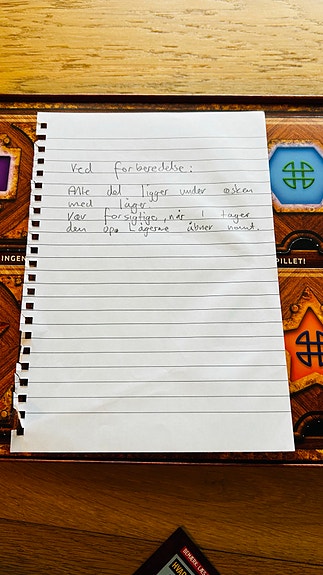 Ved forberedelse:
Alle del ligger under æsken
med låger.
Vær forsigtige, når I tager
den op. Lågerne åbner nemt.
INGEN
PILLET!